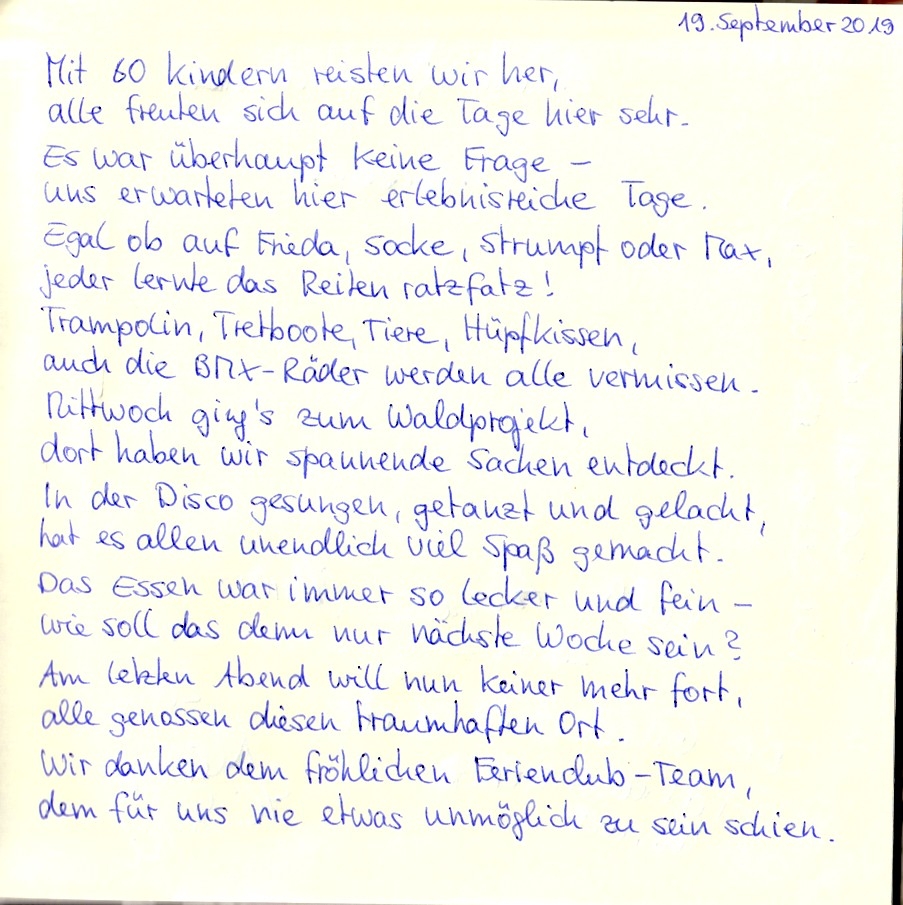 19. September 2019
Mit 60 Kindern reisten wir her,
alle freuten sich auf die Tage hier sehr.
Es war überhaupt keine Frage –
uns erwarteten hier erlebnisreiche Tage.
Egal ob auf Frieda, Socke, Strumpf oder Max,
jeder lernte das Reiten ratzfatz!
Trampolin, Tretboote, Tiere, Hüpfkissen,
auch die BMX-Räder werden alle vermissen.
Mittwoch ging's zum Waldprojekt,
dort haben wir spannende Sachen entdeckt.
In der Disco gesungen, getanzt und gelacht,
hat es allen unendlich viel Spaß gemacht.
Das Essen war immer so lecker und fein –
wie soll das denn nur nächste Woche sein?
Am letzten Abend will nun keiner mehr fort,
alle genossen diesen traumhaften Ort.
Wir danken dem fröhlichen Ferienclub-Team,
dem für uns nie etwas unmöglich zu sein schien.